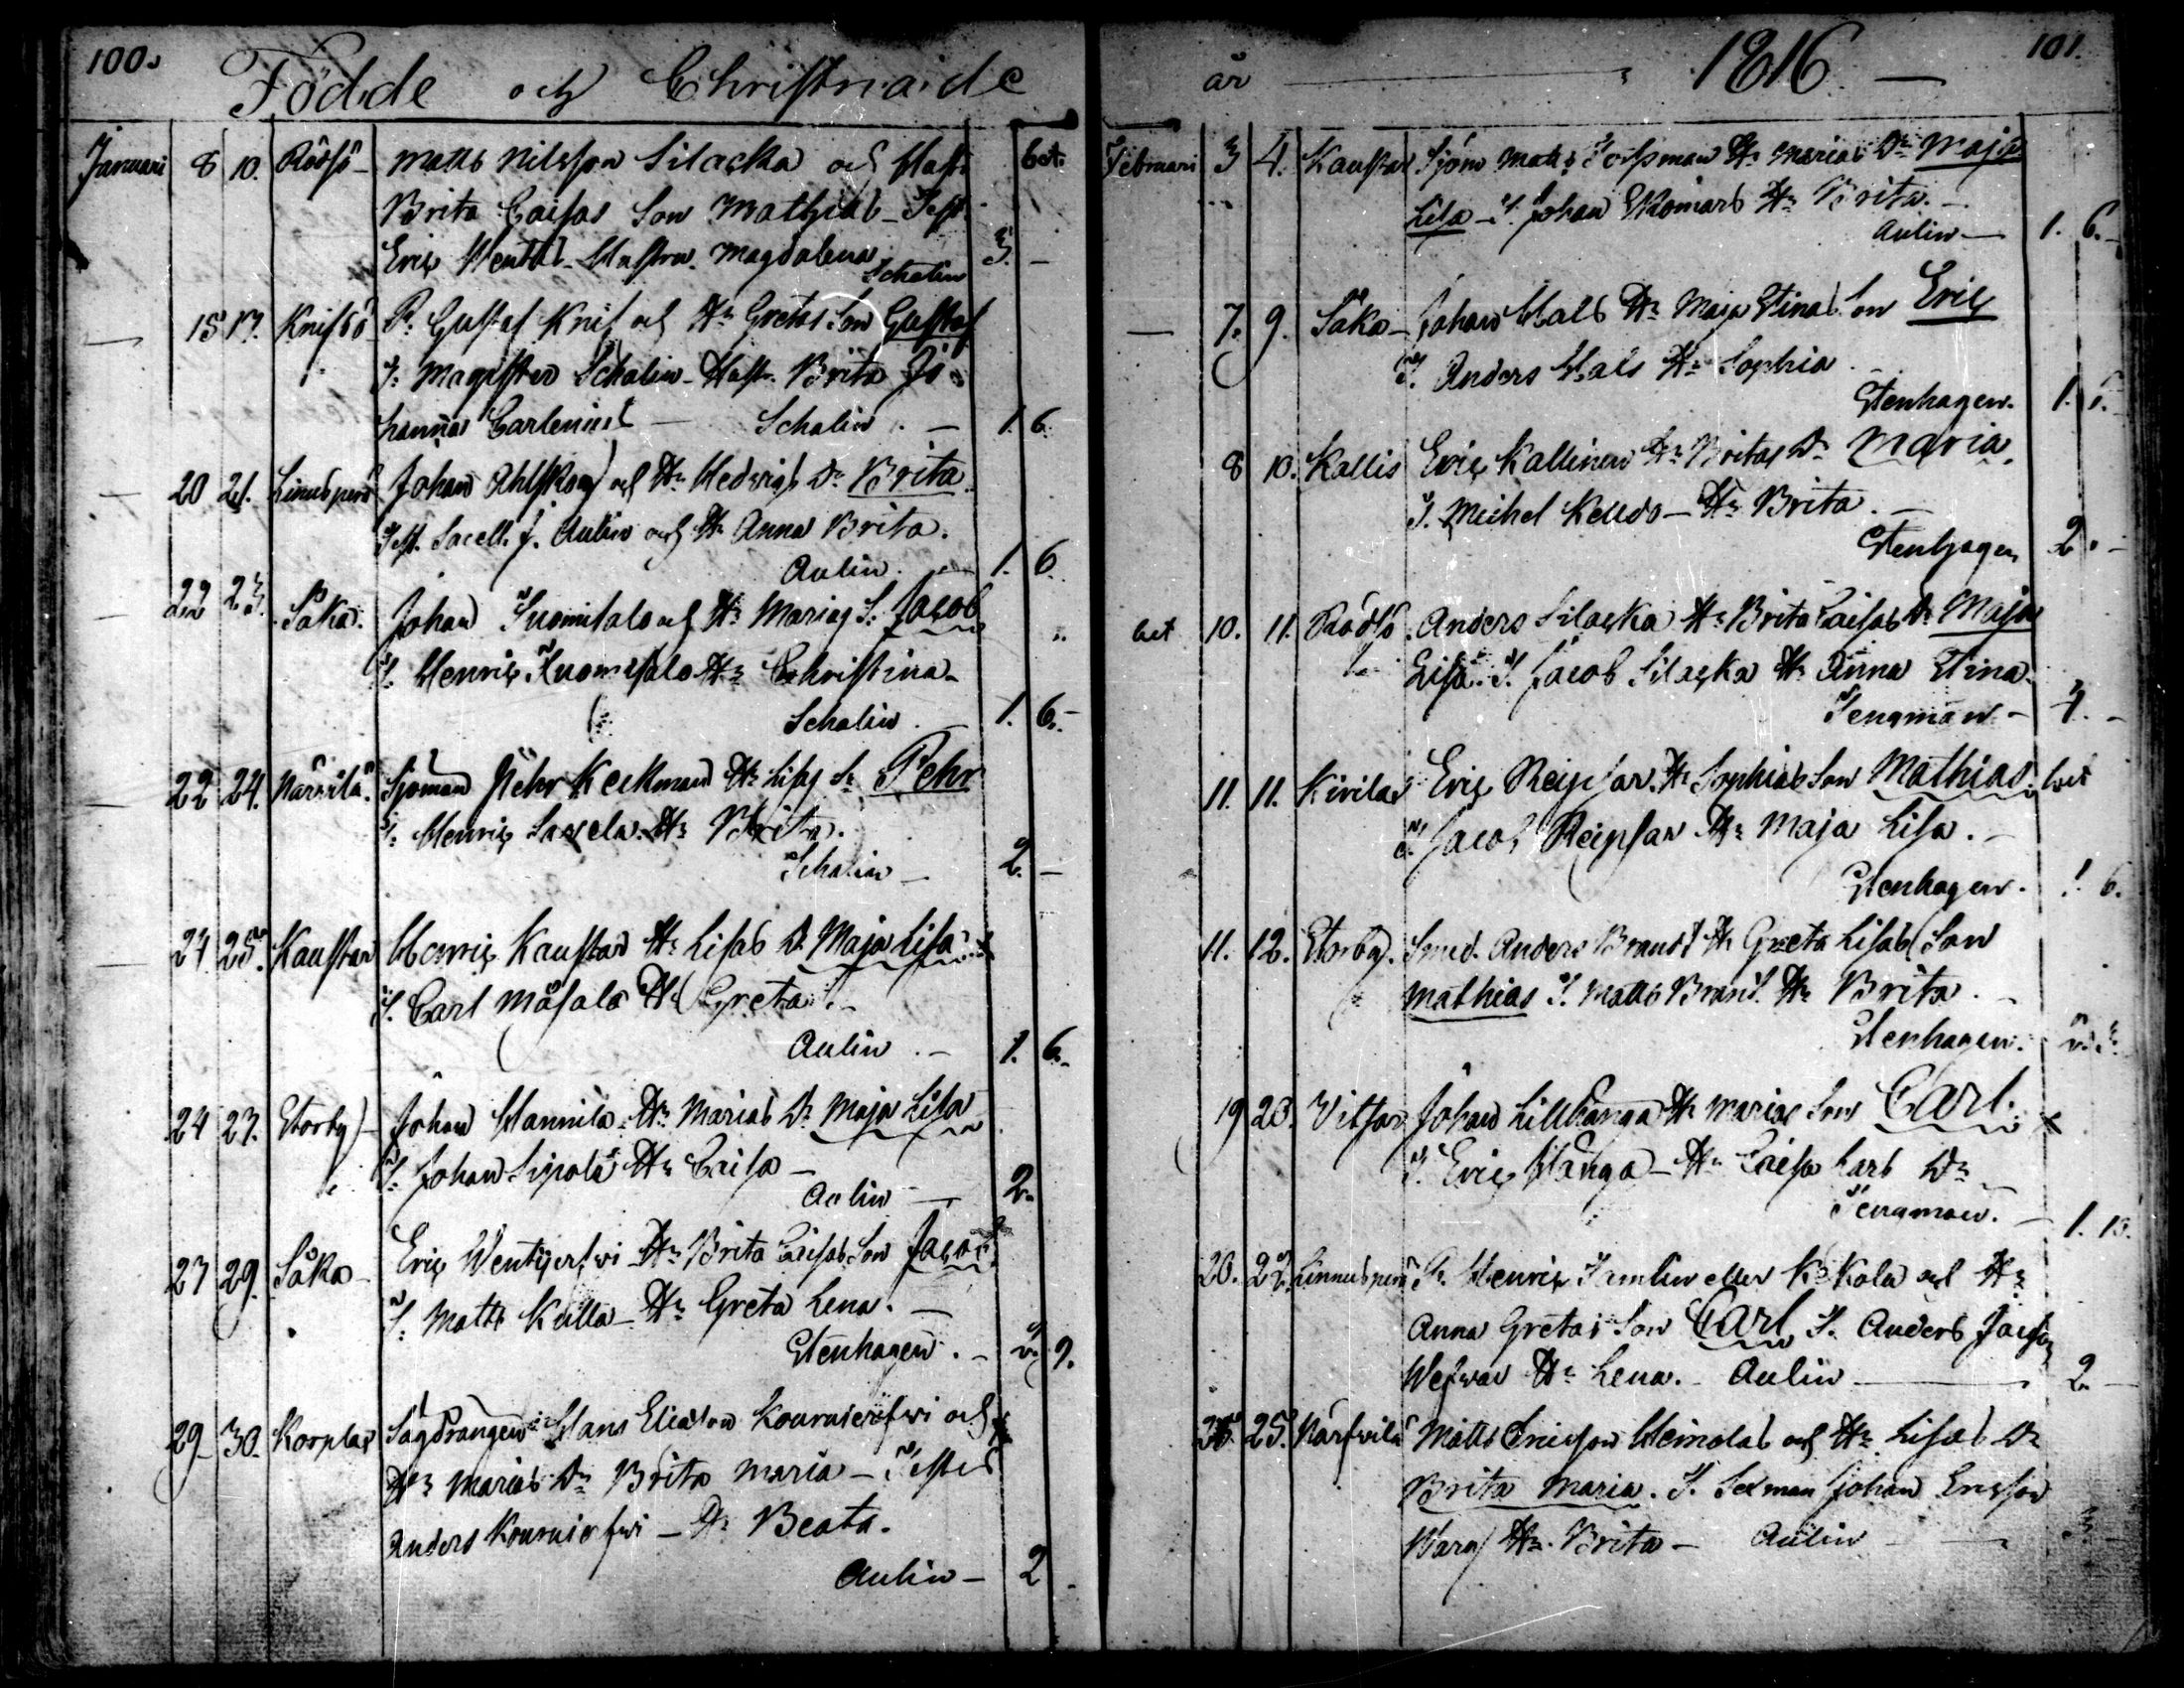 100.
Födde och Christnade
Januari 8 10. Rödsö Matts Nilsson Silacka och Hustr. bet.
Brita Caisas Son Mathias Test.
Eric Hustru Magdalena 3. –
Schalin
15 17. Knifsö B. Gustaf Knif och H: Gretas Son Gustaf
T. Magister Schalin Hustr. Brita Jo
hanna Carlenius Schalin. 1. 6.
20 21. Linusperä Johan Ahlskog och H: Hedvigs D: Brita
Test. Sacell. J. Aulin och H: Anna Brita.
Aulin. 1. 6.
22 23. Såka. Johan och H: Marias S: Jacob
T. Henric H: Christina
Schalin. 1. 6.
22 24. Närvilä. Sjöman Pehr Keckman H: Lisas S: Pehr
T. Henric Saxela H: Brita.
Schalin 2. –
24 25. Kaustar Henric Kaustar H: Lisas D: Maja Lisa
T. Carl Måsala H: Greta.
Aulin. 1. 6.
24 27. Storby Johan Hannila H: Marias D: Maja Lisa
T. Johan Sipola H: Caisa
Aulin 2.
27 29. Såka Eric Wentjerfvi H: Brita Caisas Son Jacob
T. Matts Kulla H: Greta Lena.
Stenhagen.
29 30. Korplax Sågdrängen Hans Eliasson och
H: Marias D: Brita Maria Testes
Anders H: Beata.
Aulin 2
år 1816 101.
Februari 3 4. Kaustar Sjöm Matts Forsman H: Marias D: Maja
Lisa T. Johan H: Brita.
Aulin 1. 6.
7. 9. Såka Johan Hals H: Maja Stinas Son Eric
T. Anders Hals H: Sophia
Stenhagen.
8 10. Kallis Eric Kallinen H: Britas D: Maria.
T. Michel H: Brita.
Stenhagen 2.
bet 10. 11. Rödsö Anders Silacka H: Brita Caisas D: Maja
Lisa. T. Jacob Silacka H: Anna Stina
Tengman
11. 11. Kivilax Eric Reipsar H: Sophias Son Mathias. bet
T. Jacob Reipsar H: Maja Lisa.
Stenhagen. 1. 6.
11. 12. Storby. Smed. Anders Brandt H: Greta Lisas Son
Mathias T. Matts Brandt H: Brita.
Stenhagen.
19 20. Vitsar Johan Lillhånga H: Marias Son Carl.
T. Eric Hånga H: Caisa Lars D:
Tengman.
20. Linnusperä B. Henric Tamlin eller Kokola och H:
Anna Gretas Son Carl T. Anders
H: Lena. Aulin 2
25. Närfvilä Matts Ericsson och H: Lisas D:
Brita Maria. T. Sexman Johan Ersson
Warg H: Brita – Aulin